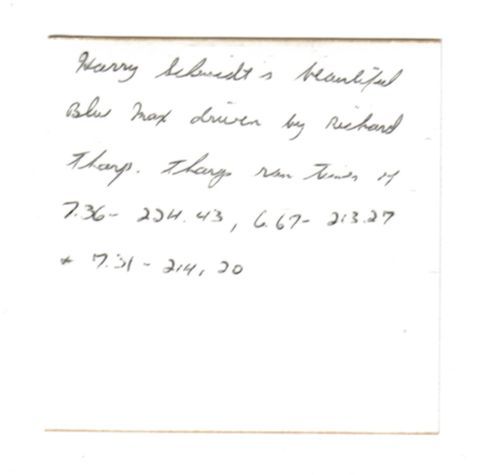 Harry Schmidt s beautiful
Blue Max driven by Richard
Tharp. Tharp ran times of
7.36- 224.43, 6.67- 213.27
+ 7.31- 214, 20